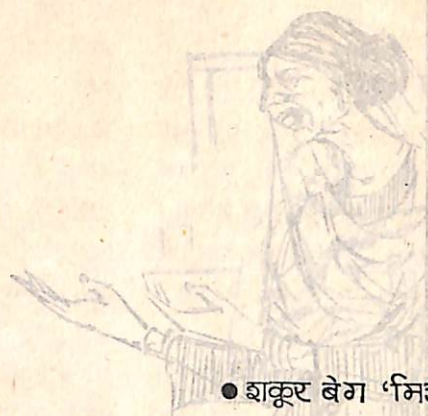 ● शकूर बेग